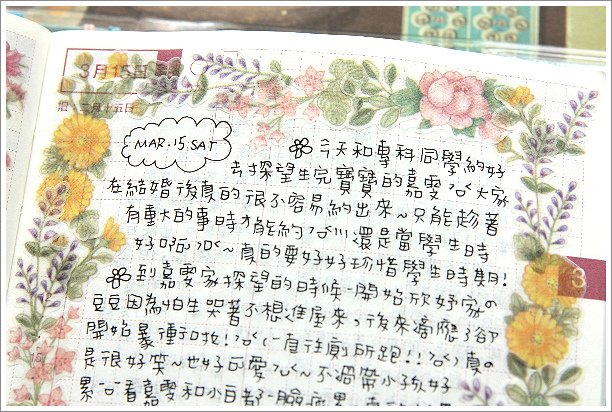 3月15日
舊 二月十五日
MAR.15.SAT
今天和專科同學約好
去探望生完寶寶的嘉雯 大家
在結婚後真的很不容易約出來~只能趁著
有重大的事時才能約 還是當學生時
好啊 ~真的要好好珍惜學生時期!
到嘉雯家探望的時候一開始欣妤家の
豆豆因為怕生哭著不想進屋來,後來適應了卻
開始暴衝 !! (一直往廁所跑!! )真の
是很好笑~也好可愛 ~不過帶小孩好
累 看嘉雯和小
3
15